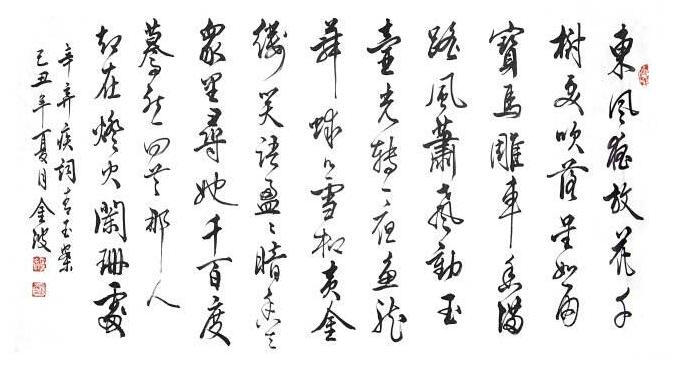 東风夜放花千
樹更吹落星如雨
寶馬雕車香滿
路風蕭聲動玉
壺光轉一夜魚龍
舞蛾兒雪柳黄金
縷笑語盈盈暗香去
眾里尋她千百度
驀然回首那人
却在燈火闌珊處
辛弃疾詞青玉案
己丑年夏月金波